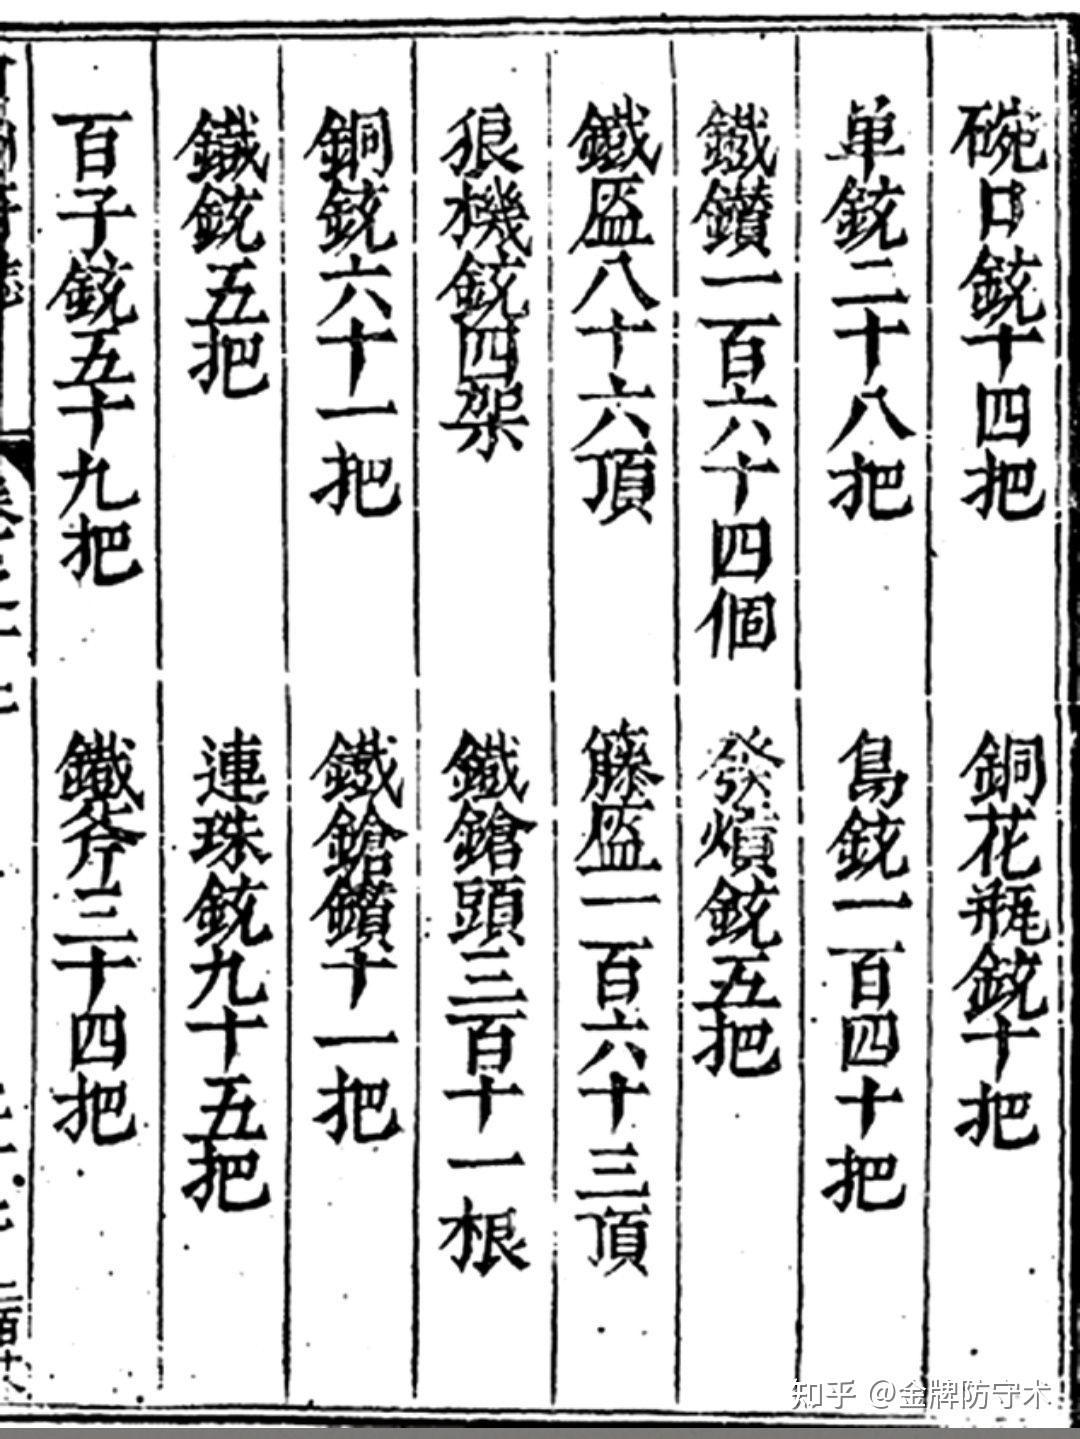 碗口銃十四把
銅花瓶銃十把
单銃二十八把
鳥銃一百四十把
鐵鑽一百六十四個
發熕銃五把
鐵盔八十六頂
籐盔一百六十三頂
狼機銃四架
鐵鎗頭三百十一根
銅銃六十一把
鐵鎗鑽十一把
鐵銃五把
連珠銃九十五把
百子銃五十九把
鐵斧三十四把
知乎 @金牌防守术